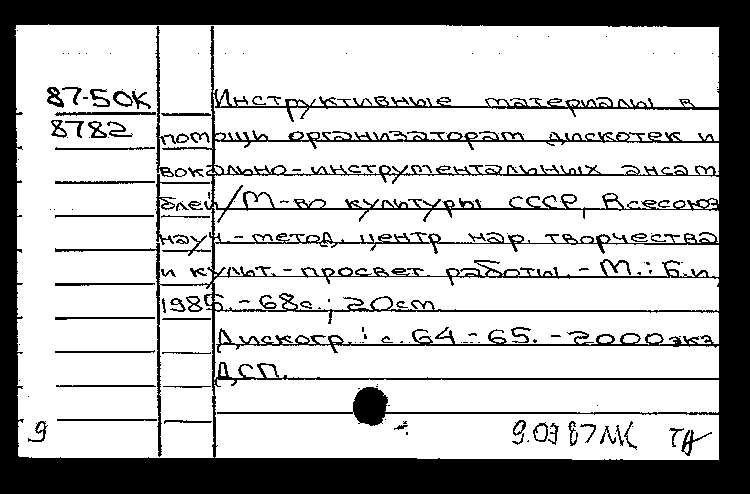 87-5ОК Инструктивные материалы в
8782 помощь организаторам дискотек и
вокально-инструментальных ансам
блей/М-во культуры СССР, Всесоюз
науч.-метод. центр нар. творчества
и культ.-просвет. работы. - М.: Б.и,
1986. - 68с.; 20см
Дискогр.: с. 64-65. - 2000экз
ДСП.
9 9.0987МК ТА